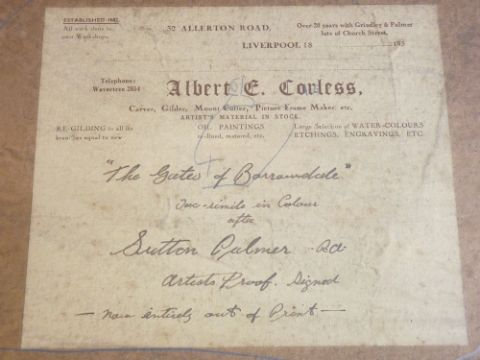 ESTABLISHED 1912
All work done in
own Workshops.
52 ALLERTON ROAD,
LIVERPOOL 18
193
Over 20 years with Grindley & Palmer
late of Church Street.
Telephone:
Wavertree 2854
Albert E. Corless,
Carver, Gilder, Mount Cutter, Picture Frame Maker, etc.
ARTIST'S MATERIAL IN STOCK.
RE-GILDING to all its
branches equal to new
OIL PAINTINGS
re-lined, restored, etc.
Large Selection of WATER-COLOURS
ETCHINGS, ENGRAVINGS, ETC
"The Gates of Borrowdale"
Fac-simile in Colour
after
Sutton Palmer
Artists Proof. Signed
— now entirely out of Print —